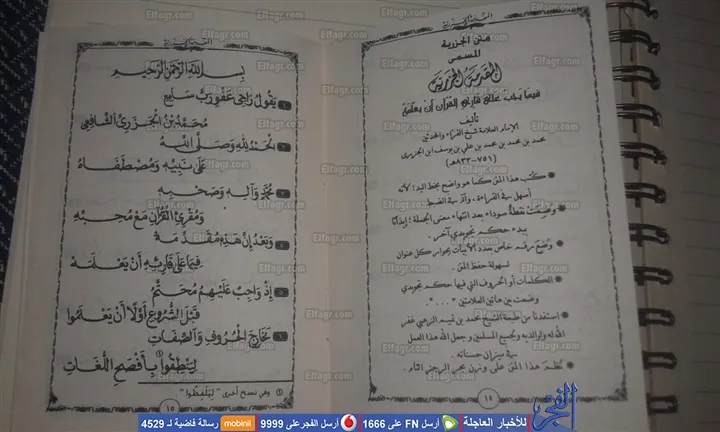 متن الجزرية
المسمى
المقدمة الجزرية
فيما يجب على قارئ القرآن أن يعلمه
تأليف
الإمام العلامة شيخ القراء والمحدثين
محمد بن محمد بن محمد بن علي بن يوسف ابن الجزري
(٧٥١-٨٣٣هـ)
كتب هذا المتن كما هو واضح بخط اليد؛ لأنه
أسهل في القراءة، وأدق في الضبط.
وضعت نقطة سوداء بعد انتهاء معنى الجملة؛ إيذانًا
ببدء حكم تجويدي آخر.
وضع رقم خاص بعدد الأبيات بجوار كل عنوان
لسهولة حفظ المتن.
الكلمات أو الحروف التي فيها حكم تجويدي
وضعت بين هاتين العلامتين "...".
استفدنا من طبعة الشيخ محمد بن تميم الزعبي غفر
الله له ولوالديه ولجميع المسلمين وجعل الله هذا العمل
في ميزان حسناته.
نُظم هذا المتن على وزن بحر الرجز التام.
١٤
بِسْمِ اللهِ الرَّحْمَنِ الرَّحِيمِ
يَقُولُ رَاجِي عَفْوِ رَبٍّ سَامِعِ
مُحَمَّدُ بْنُ الْجَزَرِيِّ الشَّافِعِي
الْحَمْدُ لِلَّهِ وَصَلَّى اللهُ
عَلَى نَبِيِّهِ وَمُصْطَفَاهُ
مُحَمَّدٍ وَآلِهِ وَصَحْبِهِ
وَمُقْرِئِ الْقُرْآنِ مَعْ مُحِبِّهِ
وَبَعْدُ إِنَّ هَذِهِ مُقَدِّمَهْ
فِيمَا عَلَى قَارِئِهِ أَنْ يَعْلَمَهْ
إِذْ وَاجِبٌ عَلَيْهِمُ مُحَتَّمُ
قَبْلَ الشُّرُوعِ أَوَّلًا أَنْ يَعْلَمُوا
مَخَارِجَ الْحُرُوفِ وَالصِّفَاتِ
لِيَنْطِقُوا (١) بِأَفْصَحِ اللُّغَاتِ
(١) وفي نسخ أخرى "لِيَلْفِظُوا".
١٥
Elfagr.com
الفجر
للأخبار العاجلة أرسل FN على 1666 أرسل الفجر على 9999 mobinil رسالة فاضية لـ 4529